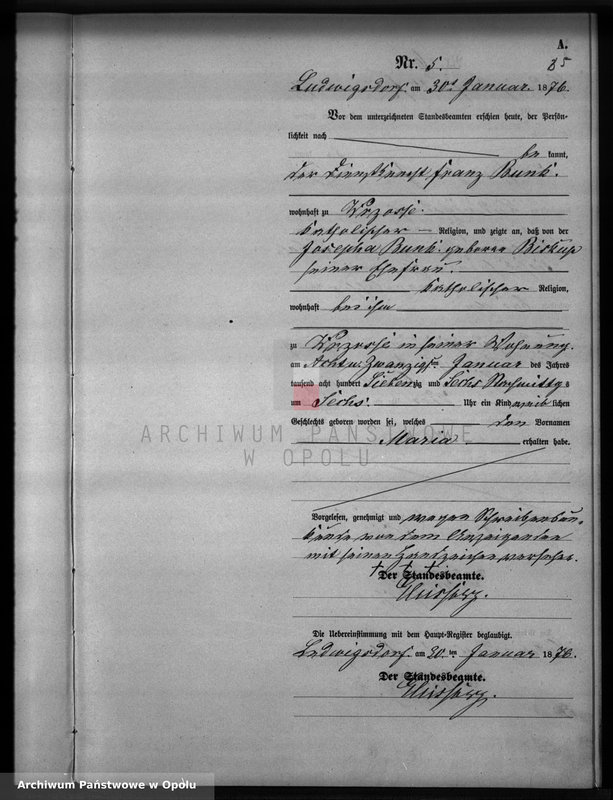 A.
Nr. 5.
Ludwigsdorf am 30t Januar 1876.
Vor dem unterzeichneten Standesbeamten erschien heute, der Persön-
lichkeit nach
be kannt,
der Dienstknecht Franz Bunk.
wohnhaft zu
katholischer Religion, und zeigte an, daß von der
Josepha Bunk geborne Biskup
seiner Ehefrau.
katholischer Religion,
wohnhaft bei ihm
zu in seiner Wohnung.
am Acht u: Zwanzigsten Januar des Jahres
tausend acht hundert Siebenzig und Sechs Nachmittags
um Sechs. Uhr ein Kind weiblichen
Geschlechts geboren worden sei, welches den Vornamen
Maria erhalten habe.
ARCHIWUM PAŃSTWOWE
W OPOLU
Vorgelesen, genehmigt und wegen Schreibensun-
kunde von dem Anzeigenden
mit seinen Handzeichen versehen.
† † †
Der Standesbeamte.
Die Uebereinstimmung mit dem Haupt-Register beglaubigt.
Ludwigsdorf am 30.ten Januar 1876.
Der Standesbeamte.
Archiwum Państwowe w Opolu